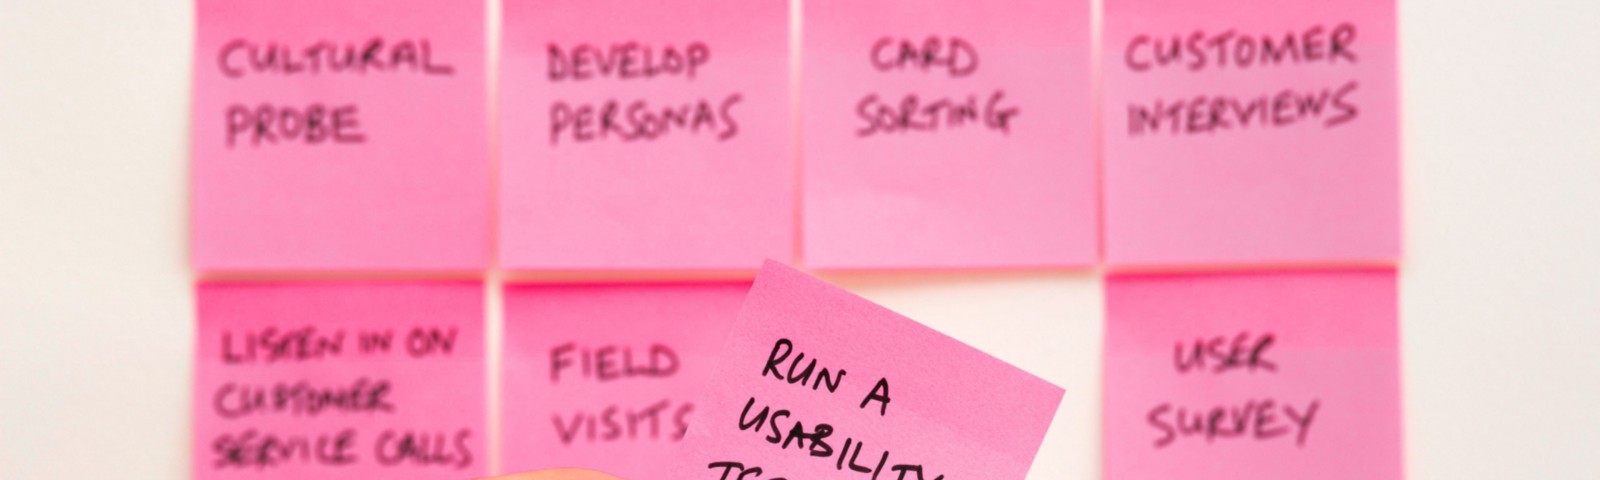 CULTURAL
PROBE
DEVELOP
PERSONAS
CARD
SORTING
CUSTOMER
INTERVIEWS
LISTEN IN ON
CUSTOMER
SERVICE CALLS
FIELD
VISITS
RUN A
USABILITY
USER
SURVEY